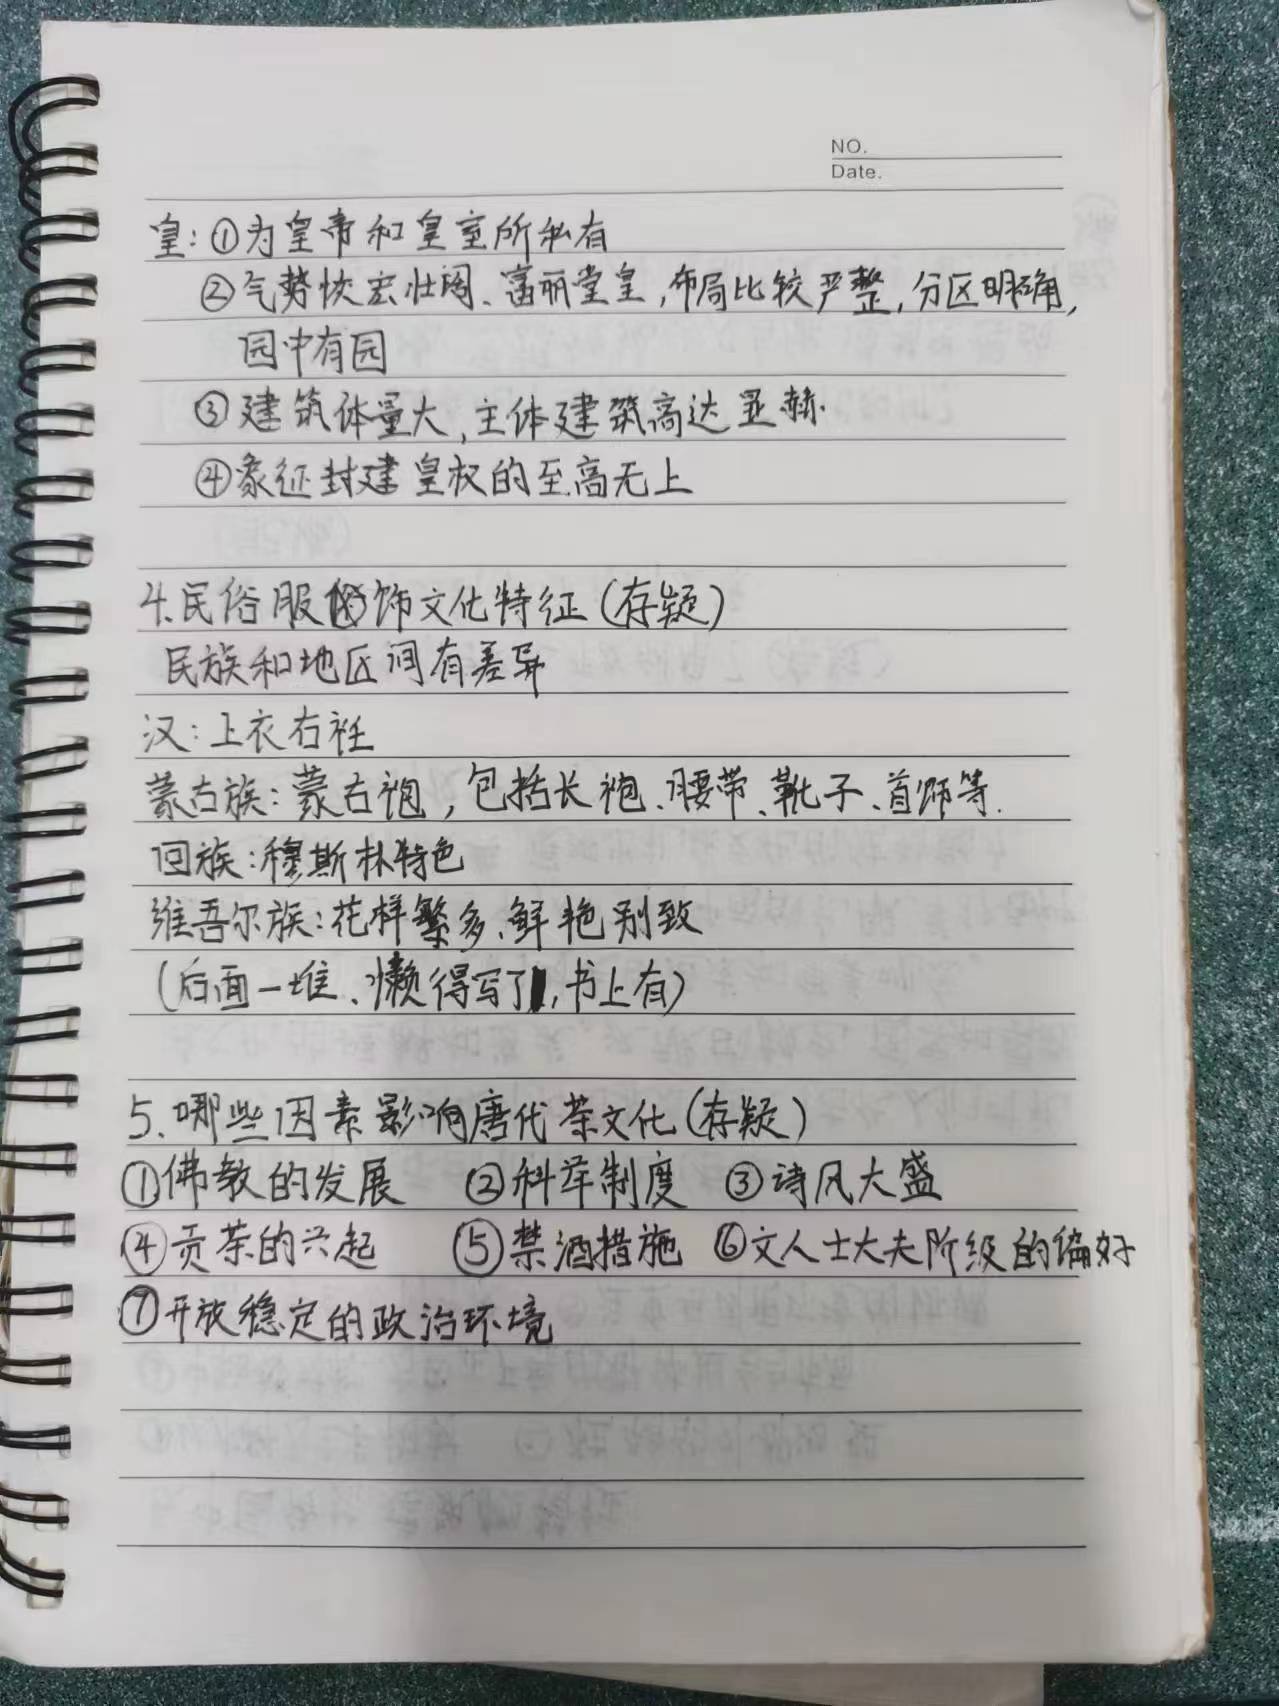 NO.
Date.
皇:①为皇帝和皇室所私有
②气势恢宏壮阔、富丽堂皇,布局比较严整,分区明确,
园中有园
③建筑体量大,主体建筑高达显赫.
④象征封建皇权的至高无上
4.民俗服饰文化特征(存疑)
民族和地区间有差异
汉:上衣右衽
蒙古族:蒙古袍,包括长袍、腰带、靴子、首饰等.
回族:穆斯林特色
维吾尔族:花样繁多、鲜艳别致
(后面一堆、懒得写了,书上有)
5.哪些因素影响唐代茶文化(存疑)
①佛教的发展 ②科举制度 ③诗风大盛
④贡茶的兴起 ⑤禁酒措施 ⑥文人士大夫阶级的偏好
⑦开放稳定的政治环境